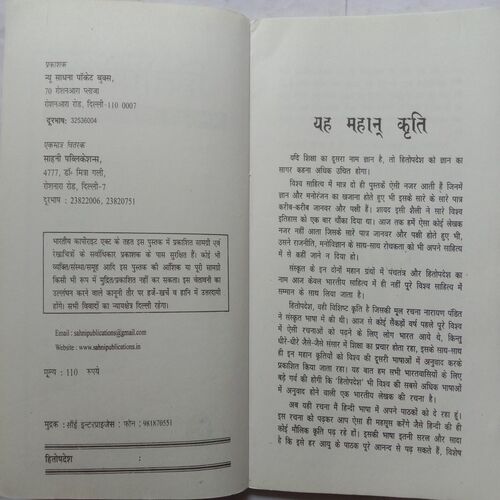 प्रकाशक
न्यू साधना पॉकेट बुक्स,
70 रोशनआरा प्लाजा
रोशनआरा रोड, दिल्ली-110 0007
दूरभाष: 32536004
एकमात्र वितरक
साहनी पब्लिकेशन्स,
4777, डॉ॰ मित्रा गली,
रोशनारा रोड, दिल्ली-7
दूरभाष : 23822006, 23820751
भारतीय कापीराइट एक्ट के तहत इस पुस्तक में प्रकाशित सामग्री एवं
रेखाचित्रों के सर्वाधिकार प्रकाशक के पास सुरक्षित हैं। कोई भी
व्यक्ति/संस्था/समूह आदि इस पुस्तक की आंशिक या पूरी सामग्री
किसी भी रूप में मुद्रित/प्रकाशित नहीं कर सकता। इस चेतावनी का
उल्लंघन करने वाले कानूनी तौर पर हर्जे-खर्चे व हानि के उत्तरदायी
होंगे। सभी विवादों का न्यायक्षेत्र दिल्ली रहेगा।
Email : sahnipublications@gmail.com
Website : www.sahnipublications.in
मूल्य : 110 रुपये
मुद्रक : सॉई इन्टरप्राइजेस : फोन : 981870551
हितोपदेश :
यह महान् कृति
यदि शिक्षा का दूसरा नाम ज्ञान है, तो हितोपदेश को ज्ञान का
सागर कहना अधिक उचित होगा।
विश्व साहित्य में मात्र दो ही पुस्तकें ऐसी नजर आती हैं जिनमें
ज्ञान और मनोरंजन का खजाना होते हुए भी इसके सारे के सारे पात्र
करीब-करीब जानवर और पक्षी हैं। शायद इसी शैली ने सारे विश्व
इतिहास को एक बार चौंका दिया था। आज तक हमें ऐसा कोई लेखक
नजर नहीं आता जिसके सारे पात्र जानवर और पक्षी होते हुए भी,
उसने राजनीति, मनोविज्ञान के साथ-साथ रोचकता को भी अपने साहित्य
में से कहीं जाने न दिया हो।
संस्कृत के इन दोनों महान ग्रंथों में पंचतंत्र और हितोपदेश का
नाम आज केवल भारतीय साहित्य में ही नहीं पूरे विश्व साहित्य में
सम्मान के साथ लिया जाता है।
हितोपदेश, वही विशिष्ट कृति है जिसकी मूल रचना नारायण पंडित
ने संस्कृत भाषा में की थी। आज से कोई सैंकड़ों वर्ष पहले पूरे विश्व
में ऐसी रचनाओं को पढ़ने के लिए लोग भारत आये थे, किन्तु
धीरे-धीरे जैसे-जैसे संसार में शिक्षा का प्रचार होता रहा, इसके साथ-साथ
ही इन महान कृतियों को विश्व की दूसरी भाषाओं में अनुवाद करके
प्रकाशित किया जाता रहा। यह बात हम सभी भारतवासियों के लिए
बड़े गर्व की होगी कि 'हितोपदेश' भी विश्व की सबसे अधिक भाषाओं
में अनुवाद होने वाली एक भारतीय लेखक की रचना है।
अब यही रचना में हिन्दी भाषा में अपने पाठकों को दे रहा हूं।
इस रचना को पढ़कर आप ऐसा ही महसूस करेंगे जैसे हिन्दी की ही
कोई मौलिक कृति पढ़ रहे हों। इसकी भाषा इतनी सरल और सादा
है कि इसे हर आयु के पाठक पूरे आनन्द से पढ़ सकते हैं, विशेष